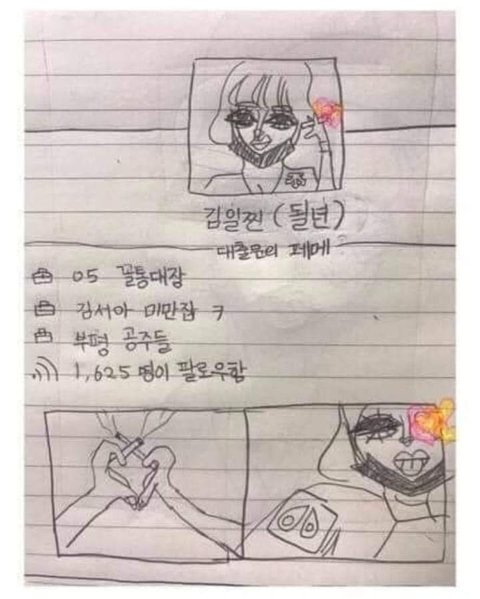 김일찐 (될년)
대출문의 페메
05 꼴통대장
김서아 미만잡 ㅋ
부평 공주들
1,625 명이 팔로우함